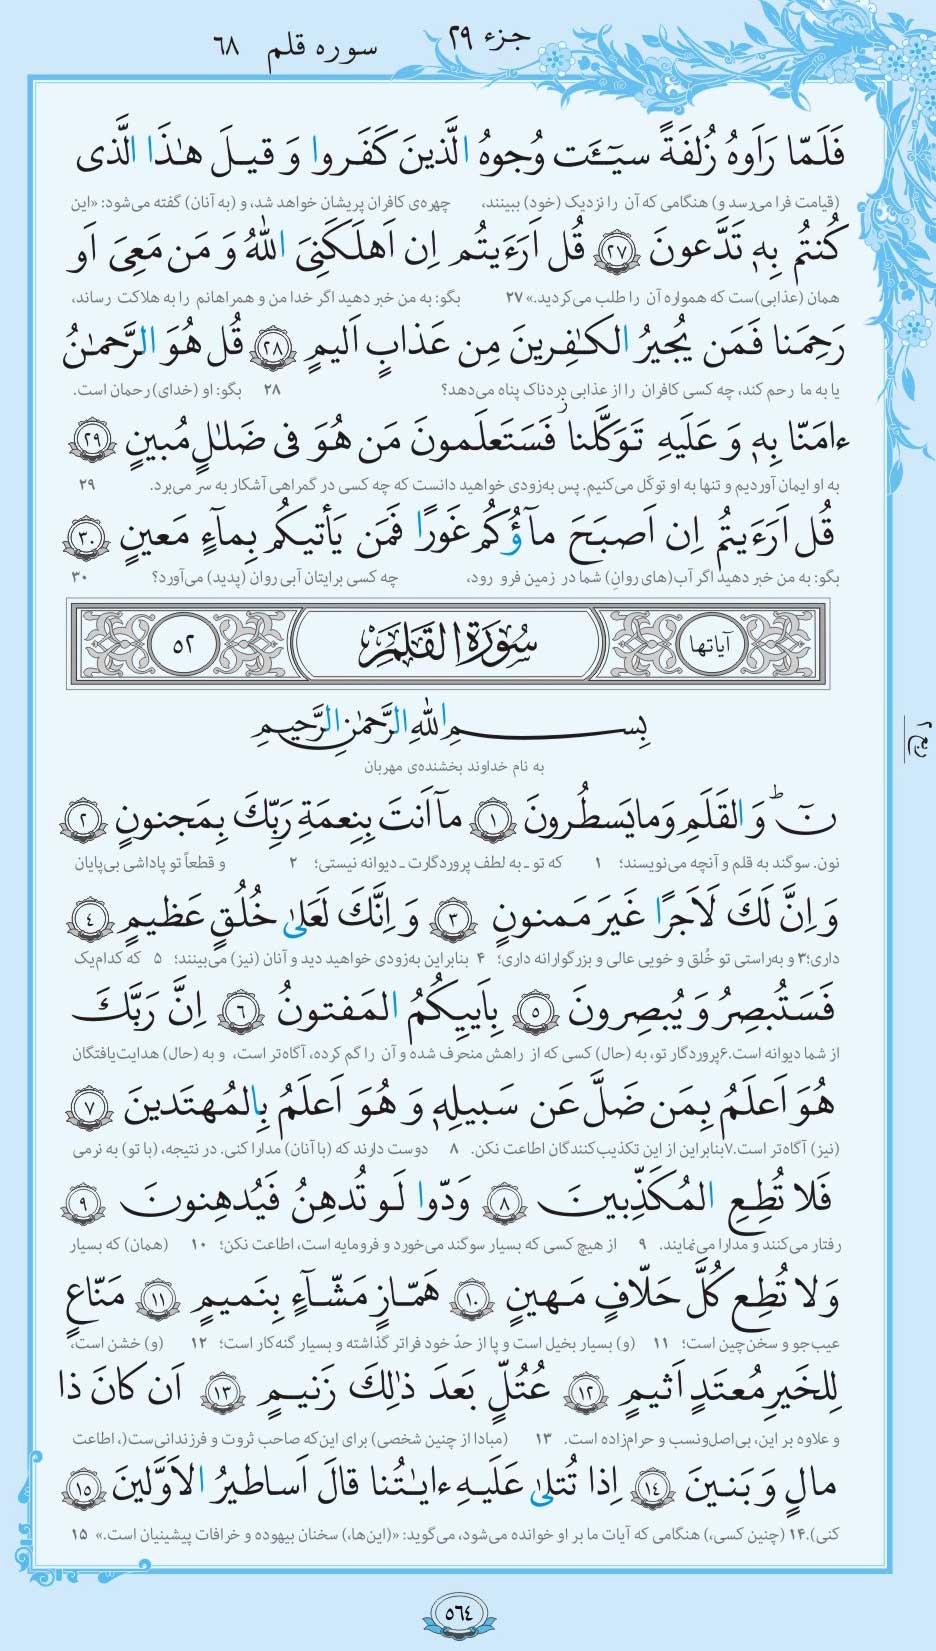 جزء ۲۹
سوره قلم ۶۸
فَلَمّا رَاَوهُ زُلفَةً سيـَٔت وُجوهُ الَّذينَ كَفَروا وَ قيلَ هٰذَا الَّذى
(قیامت فرا می‌رسد و) هنگامی که آن را نزدیک (خود) ببینند، چهره‌ی کافران پریشان خواهد شد، و (به آنان) گفته می‌شود: «این
كُنتُم بِهٖ تَدَّعونَ ﴿۲۷﴾ قُل اَرَءَيتُم اِن اَهلَكَنِىَ اللّٰهُ وَ مَن مَعِىَ اَو
همان (عذابی)ست که همواره آن را طلب می‌کردید.» ۲۷ بگو: به من خبر دهید اگر خدا من و همراهانم را به هلاکت رساند،
رَحِمَنا فَمَن يُجيرُ الكٰفِرينَ مِن عَذابٍ اَليمٍ ﴿۲۸﴾ قُل هُوَ الرَّحمٰنُ
یا به ما رحم کند، چه کسی کافران را از عذابی دردناک پناه می‌دهد؟ ۲۸ بگو: او (خدای) رحمان است.
ءامَنّا بِهٖ وَ عَلَيهِ تَوَكَّلنا فَسَتَعلَمونَ مَن هُوَ فى ضَلٰلٍ مُبينٍ ﴿۲۹﴾
به او ایمان آوردیم و تنها به او توکّل می‌کنیم. پس به‌زودی خواهید دانست که چه کسی در گمراهی آشکار به سر می‌برد. ۲۹
قُل اَرَءَيتُم اِن اَصبَحَ مآؤُكُم غَورًا فَمَن يَأتيكُم بِمآءٍ مَعينٍ ﴿۳۰﴾
بگو: به من خبر دهید اگر آب(های روانِ) شما در زمین فرو رود، چه کسی برایتان آبی روان (پدید) می‌آورد؟ ۳۰
آیاتها سُورَةُ القَلَمِ ۵۲
بِسمِ اللّٰهِ الرَّحمٰنِ الرَّحيمِ
به نام خداوند بخشنده‌ی مهربان
نٓ ۚ وَ القَلَمِ وَ ما يَسطُرونَ ﴿۱﴾ مآ اَنتَ بِنِعمَةِ رَبِّكَ بِمَجنونٍ ﴿۲﴾
نون. سوگند به قلم و آنچه می‌نویسند؛ ۱ که تو ـ به لطف پروردگارت ـ دیوانه نیستی؛ ۲ و قطعاً تو پاداشی بی‌پایان
وَ اِنَّ لَكَ لَاَجرًا غَيرَ مَمنونٍ ﴿۳﴾ وَ اِنَّكَ لَعَلىٰ خُلُقٍ عَظيمٍ ﴿۴﴾
داری؛۳ و به‌راستی تو خُلق و خویی عالی و بزرگوارانه داری؛ ۴ بنابراین به‌زودی خواهید دید و آنان (نیز) می‌بینند؛ ۵ که کدام‌یک
فَسَتُبصِرُ وَ يُبصِرونَ ﴿۵﴾ بِاَييِكُمُ المَفتونُ ﴿۶﴾ اِنَّ رَبَّكَ
از شما دیوانه است.۶پروردگار تو، به (حال) کسی که از راهش منحرف شده و آن را گم کرده، آگاه‌تر است، و به (حال) هدایت‌یافتگان
هُوَ اَعلَمُ بِمَن ضَلَّ عَن سَبيلِهٖ وَ هُوَ اَعلَمُ بِالمُهتَدينَ ﴿۷﴾
(نیز) آگاه‌تر است.۷بنابراین از این تکذیب‌کنندگان اطاعت نکن. ۸ دوست دارند که (با آنان) مدارا کنی. در نتیجه، (با تو) به نرمی
فَلا تُطِعِ المُكَذِّبينَ ﴿۸﴾ وَدّوا لَو تُدهِنُ فَيُدهِنونَ ﴿۹﴾
رفتار می‌کنند و مدارا می‌نمایند. ۹ از هیچ کسی که بسیار سوگند می‌خورد و فرومایه است، اطاعت نکن؛ ۱۰ (همان) که بسیار
وَلا تُطِع كُلَّ حَلّافٍ مَهينٍ ﴿۱۰﴾ هَمّازٍ مَشّآءٍ بِنَميمٍ ﴿۱۱﴾ مَنّاعٍ
عیب‌جو و سخن‌چین است؛ ۱۱ (و) بسیار بخیل است و پا از حدّ خود فراتر گذاشته و بسیار گنه‌کار است؛ ۱۲ (و) خشن است،
لِلخَيرِ مُعتَدٍ اَثيمٍ ﴿۱۲﴾ عُتُلٍّ بَعدَ ذٰلِكَ زَنيمٍ ﴿۱۳﴾ اَن كانَ ذا
و علاوه بر این، بی‌اصل‌ونسب و حرام‌زاده است. ۱۳ (مبادا از چنین شخصی) برای این‌که صاحب ثروت و فرزندانی‌ست(، اطاعت
مالٍ وَ بَنينَ ﴿۱۴﴾ اِذا تُتلىٰ عَلَيهِ ءايٰتُنا قالَ اَساطيرُ الاَوَّلينَ ﴿۱۵﴾
کنی).۱۴ (چنین کسی،) هنگامی که آیات ما بر او خوانده می‌شود، می‌گوید: «(این‌ها،) سخنان بیهوده و خرافات پیشینیان است.» ۱۵
۵۶۴